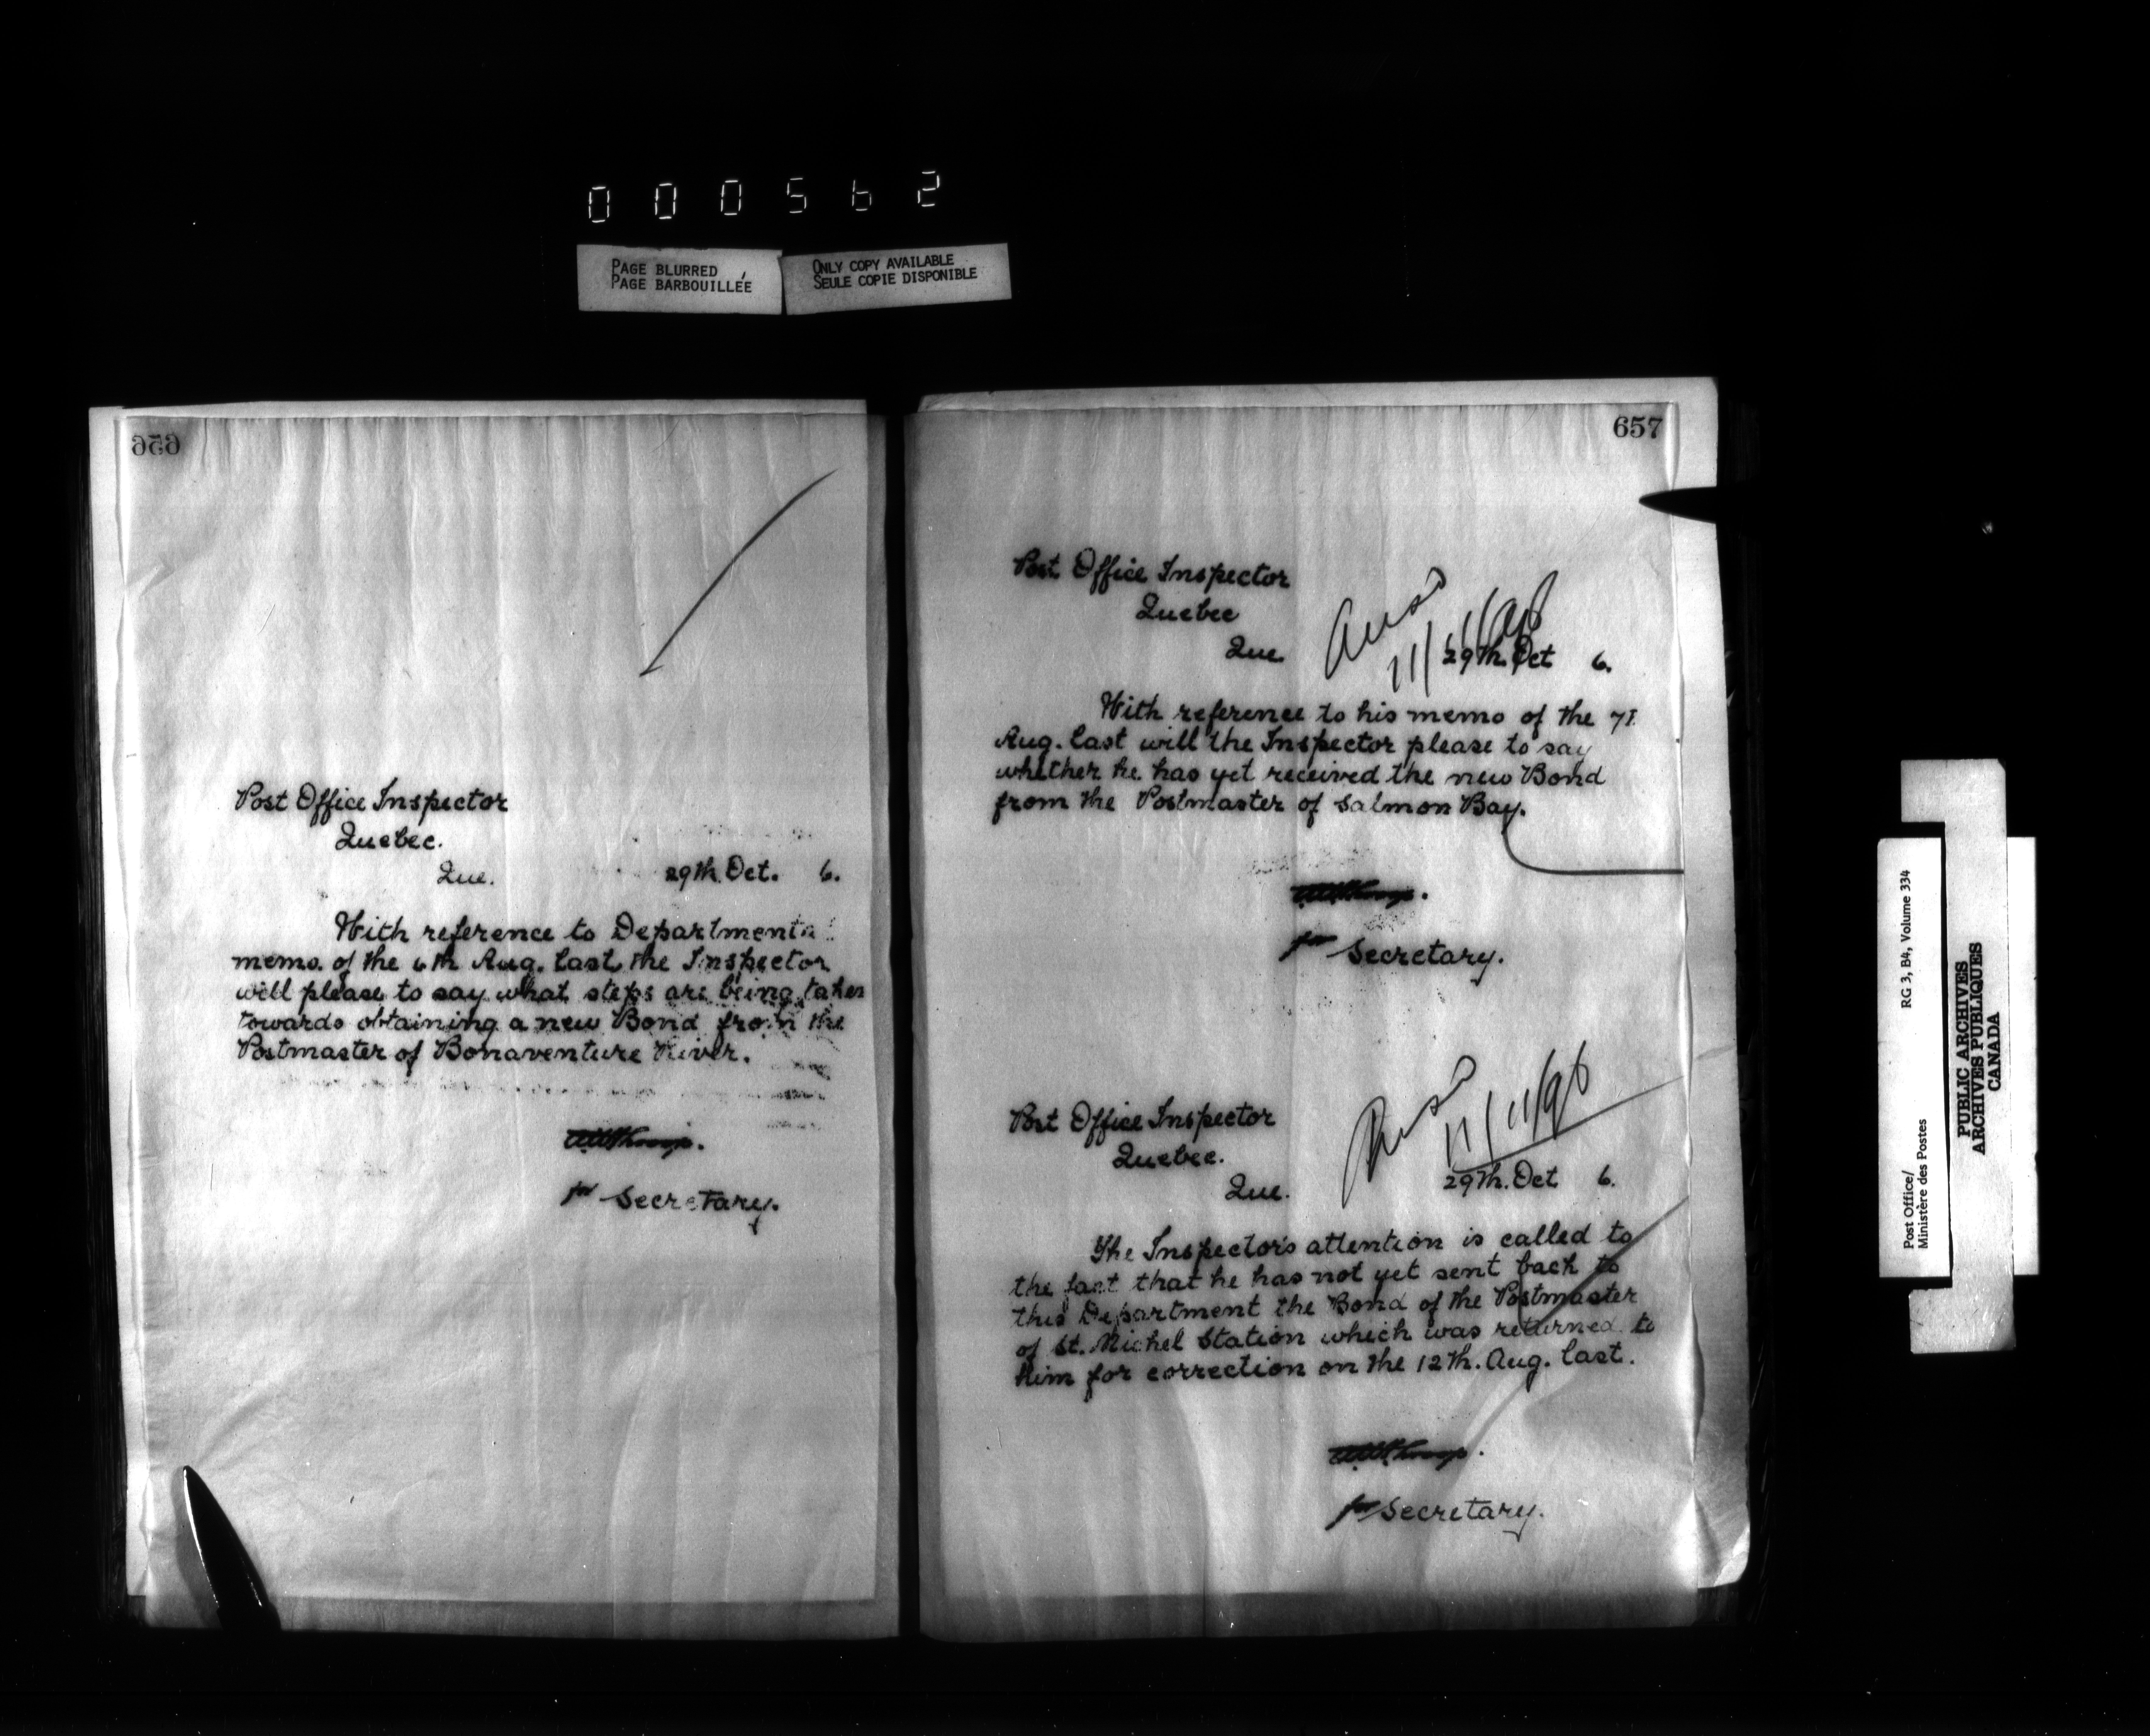 000562
PAGE BLURRED
PAGE BARBOUILLÉE
ONLY COPY AVAILABLE
SEULE COPIE DISPONIBLE
656
Post Office Inspector
Quebec.
Que.
29th. Oct. 6.
With reference to Departmental
memo. of the 6th Aug. last, the Inspector
will please to say what steps are being taken
towards obtaining a new Bond from the
Postmaster of Bonaventure River.
for Secretary.
657
Post Office Inspector
Quebec
Que.
Ansd
11/11/96
29th. Oct 6.
With reference to his memo of the 7th
Aug. last will the Inspector please to say
whether he has yet received the new Bond
from the Postmaster of Salmon Bay.
for Secretary.
Post Office Inspector
Quebec.
Que.
Ansd
11/11/96
29th. Oct 6.
The Inspector's attention is called to
the fact that he has not yet sent back to
this Department the Bond of the Postmaster
of St. Michel Station which was returned to
him for correction on the 12th. Aug. last.
for Secretary.
Post Office/
Ministère des Postes
RG 3, B4, Volume 334
PUBLIC ARCHIVES
ARCHIVES PUBLIQUES
CANADA